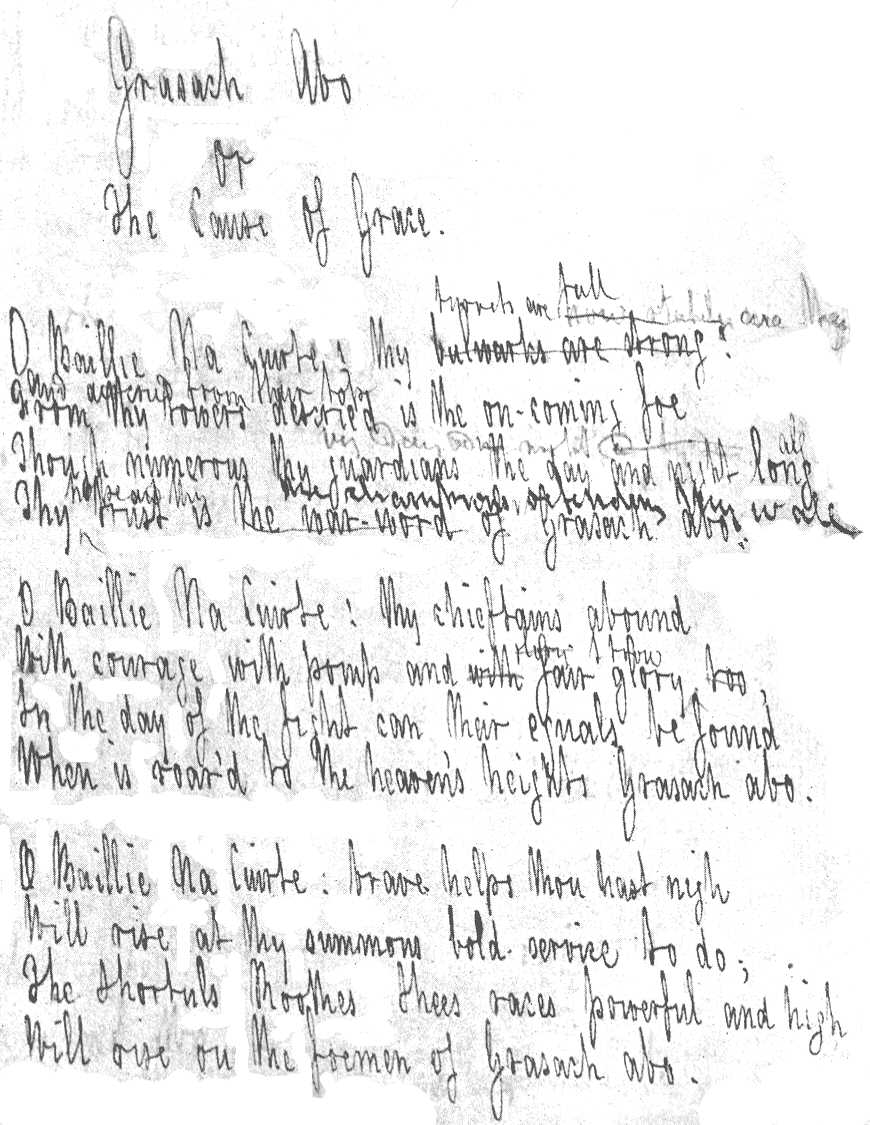 Grasach Abo
or
The Cause of Grace.
turrets are tall
O Baillie Na Cuirte : thy bulwarks are strong :
and from their tops
From thy towers descried is the on-coming foe
Though numerous thy guardians the day and night long
Thy trust is the war-word of Grasach abo.
O Baillie Na Cuirte : thy chieftains abound
With courage with pomp and with fair glory too,
In the day of the fight can their equals be found
When is roar'd to the heaven's heights Grasach abo.
O Baillie Na Cuirte : brave helps thou hast nigh
Will rise at thy summons bold service to do ;
The Shortals races powerful and high
Will rise on the foemen of Grasach abo.